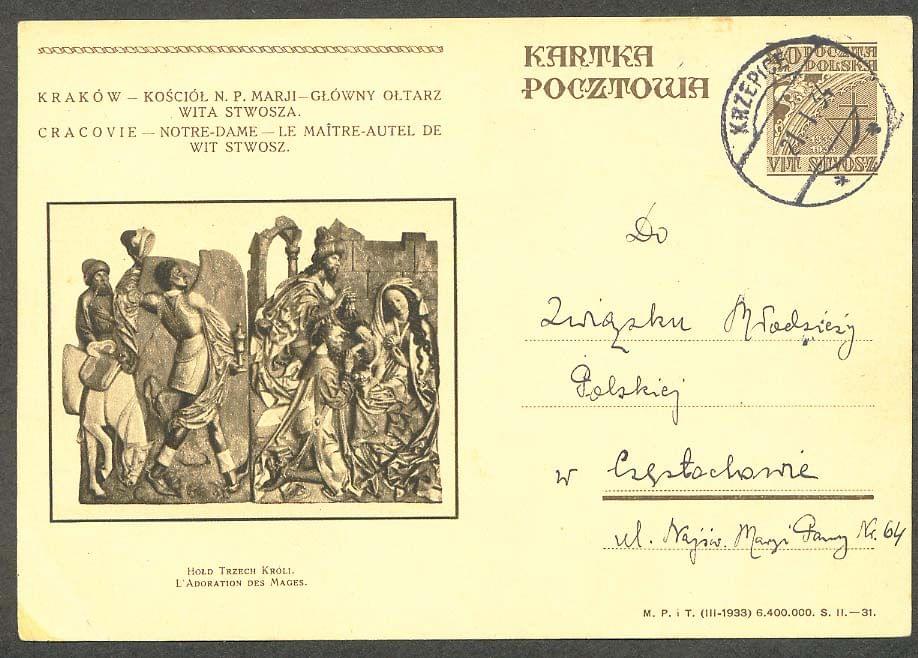 KRAKÓW — KOŚCIÓŁ N. P. MARJI — GŁÓWNY OŁTARZ
WITA STWOSZA.
CRACOVIE — NOTRE-DAME — LE MAÎTRE-AUTEL DE
WIT STWOSZ.
HOŁD TRZECH KRÓLI.
L'ADORATION DES MAGES.
KARTKA
POCZTOWA
POCZTA
POLSKA
VIT STVOSZ
KRZEPICE
21. I.
Do
Związku Młodzieży
Polskiej
w Częstochowie
ul. Najśw. Marji Panny Nr. 64
M. P. i T. (III-1933) 6.400.000. S. II.—31.